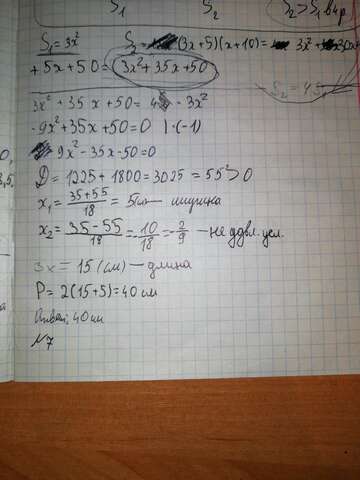 S₁ S₂ S₂ > S₁ в 4 р
S₁ = 3x² S₂ = (3x+5)(x+10) = 3x² + 30x
+ 5x + 50 = 3x² + 35x + 50
S₂ = 4S₁
3x² + 35x + 50 = 4 · 3x²
-9x² + 35x + 50 = 0 | · (-1)
9x² - 35x - 50 = 0
D = 1225 + 1800 = 3025 = 55² > 0
x₁ = (35+55)/18 = 5см — ширина
x₂ = (35-55)/18 = -10/18 = -2/9 — не удвл. усл.
3x = 15 (см) — длина
P = 2(15+5) = 40 см
Ответ: 40 см
№7